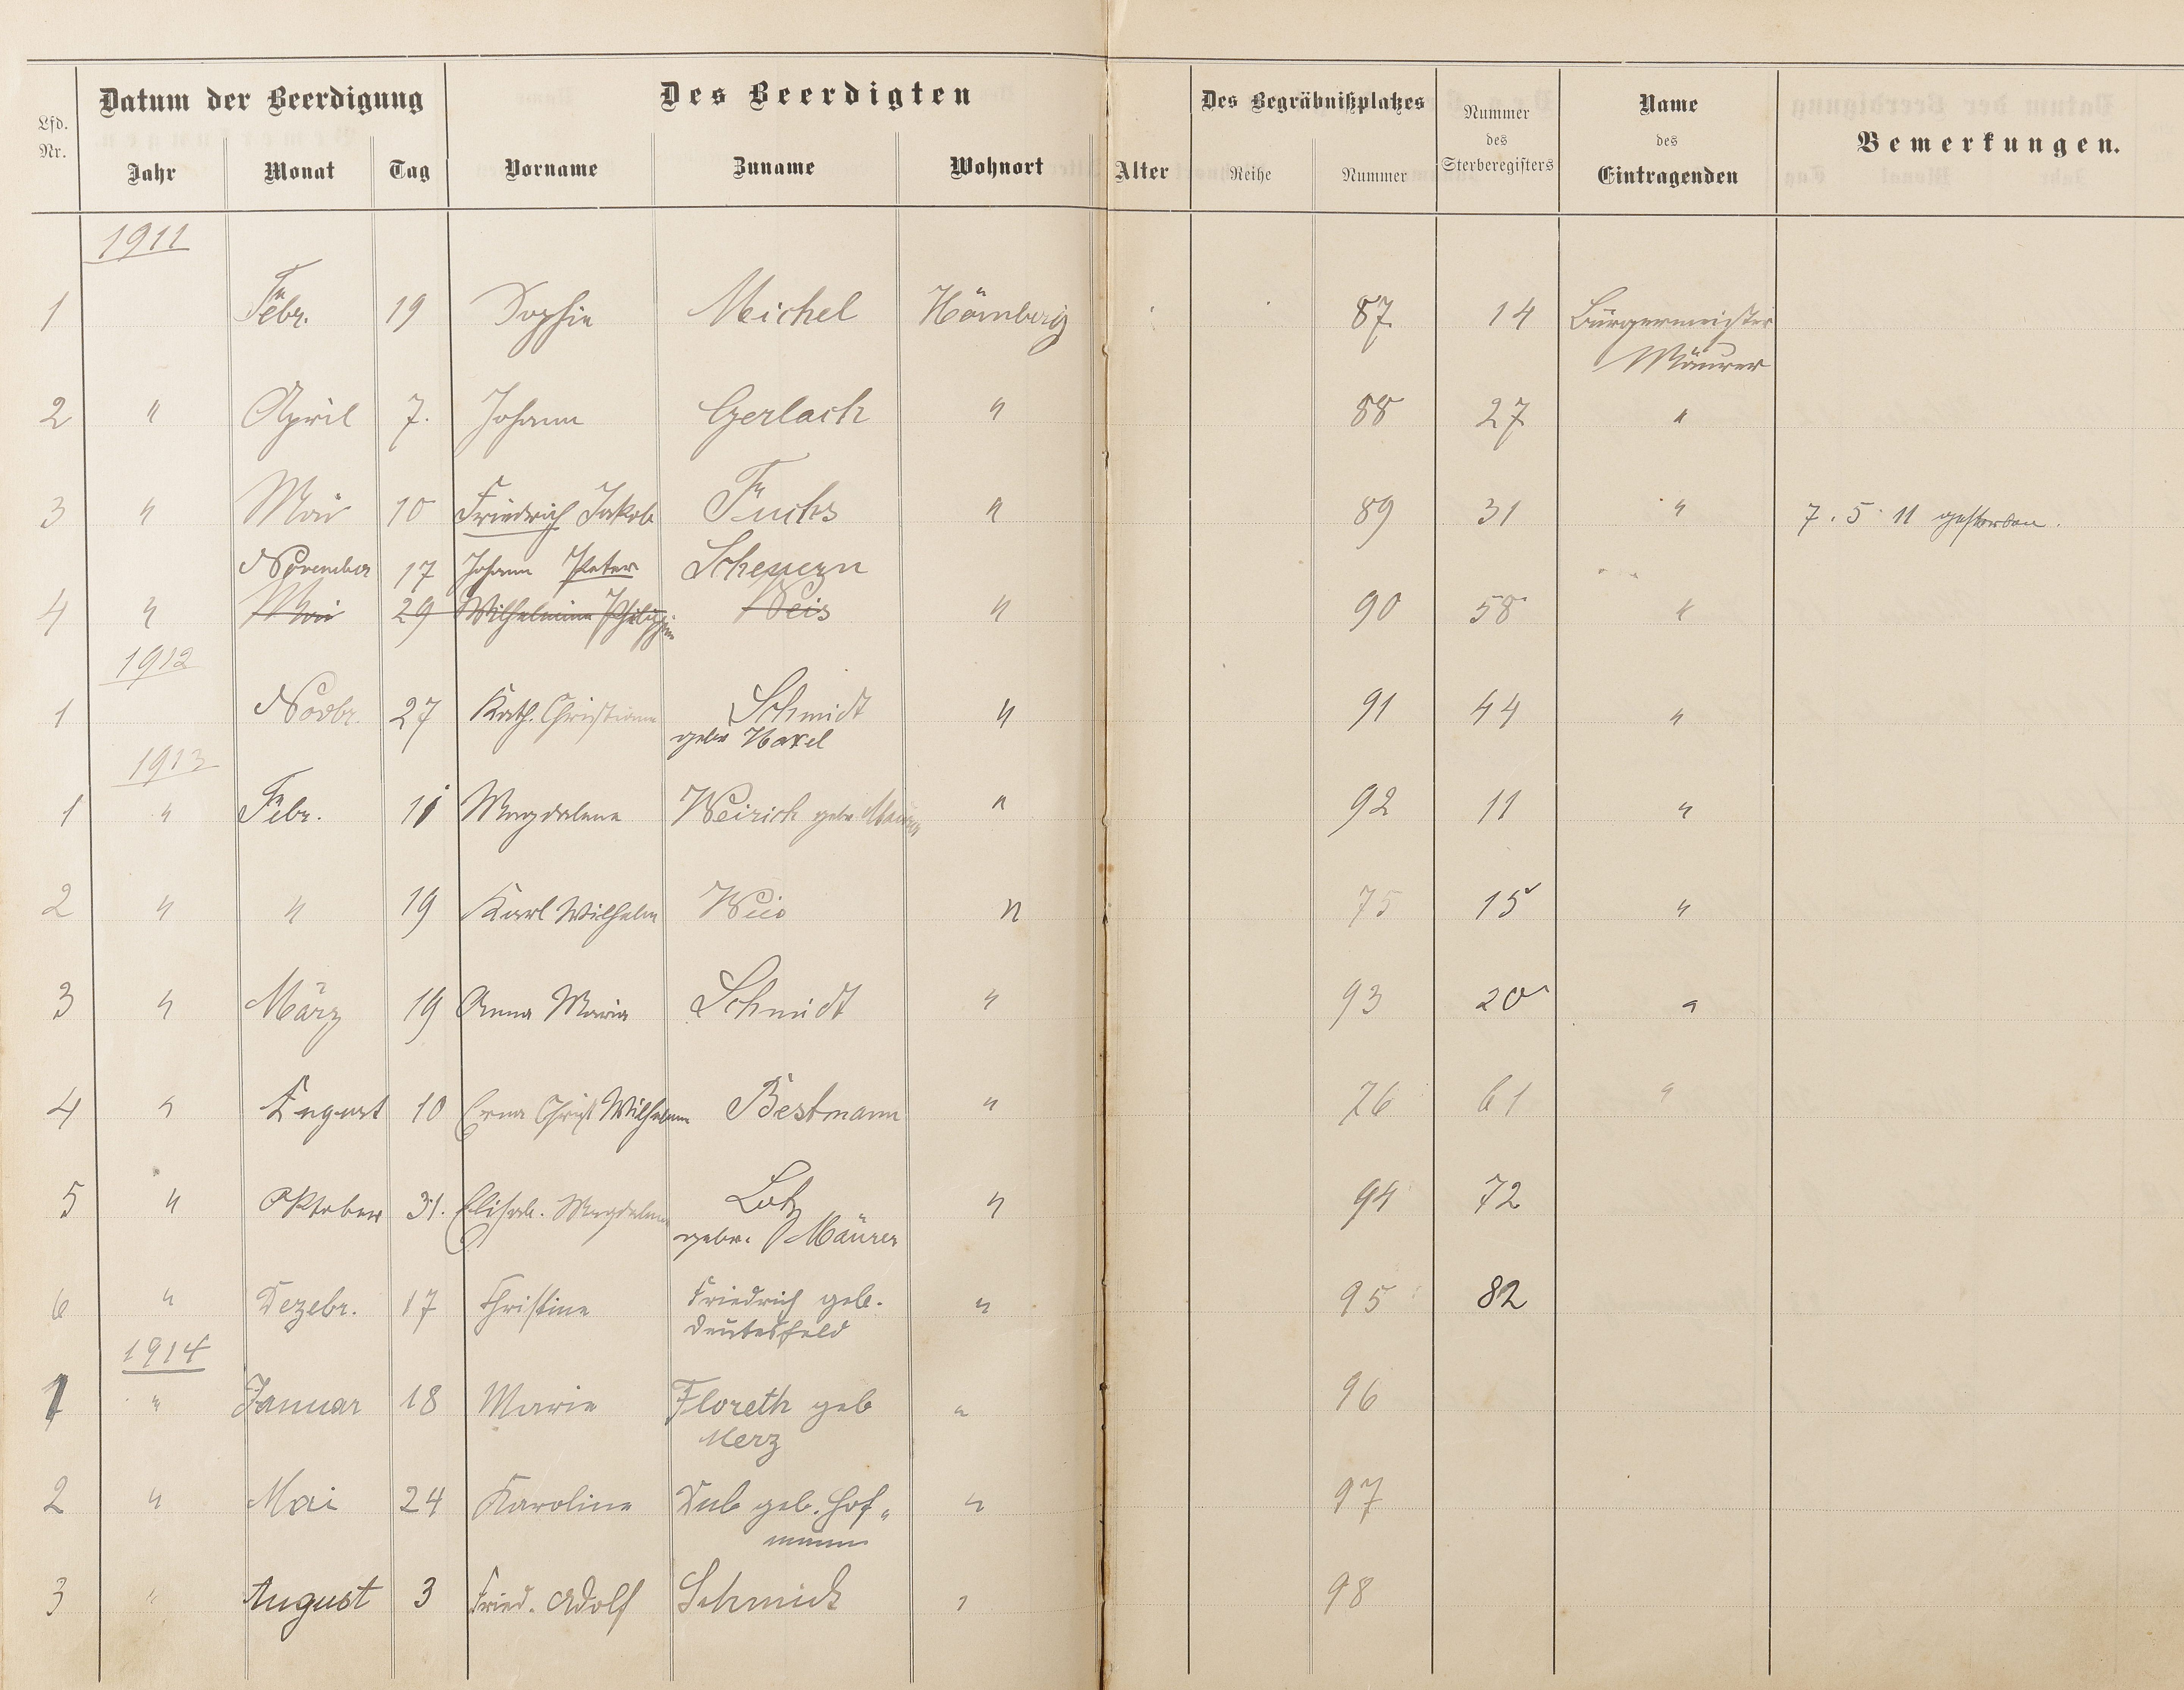 Datum der Beerdigung Des Beerdigten Des Begräbnißplatzes Nummer des Sterberegisters Name des Eintragenden Bemerkungen.
Lfd. Nr. Jahr Monat Tag Vorname Zuname Wohnort Alter Reihe Nummer
1911
1 Febr. 19 Sophie Michel Hömberg 87. 14 Bürgermeister
Mäurer
2 " April 7. Johann Gerlach " 88 27 "
3 " Mai 10 Friedrich Jakob Fuchs " 89 31 " 7. 5. 11 gestorben.
November 17 Johann Peter Scheuern
4 " Mai 29 Wilhelmine Philippine Weis " 90 58 "
1912
1 Novbr. 27 Kath. Christiane Schmidt " 91 44 "
gebr
1913
1 " Febr. 11 Magdalene Weirich gebr. Mäurer " 92 11 "
2 " " 19 Karl Wilhelm Weis " 75 15 "
3 " März 19 Anna Maria Schmidt " 93 20 "
4 " August 10 Erna Christ Wilhelmine Bestmann " 76 61 "
5 " Oktober 31. Elisab. Magdalene Lotz " 94 72
gebr. Mäurer
6 " Dezebr. 17 Christine Friedrich geb. " 95 82
1914
1 " Januar 18 Marie Floreth geb " 96
Merz
2 " Mai 24 Karoline geb. Hof- " 97
mann
3 " August 3 Fried. Adolf Schmidt " 98